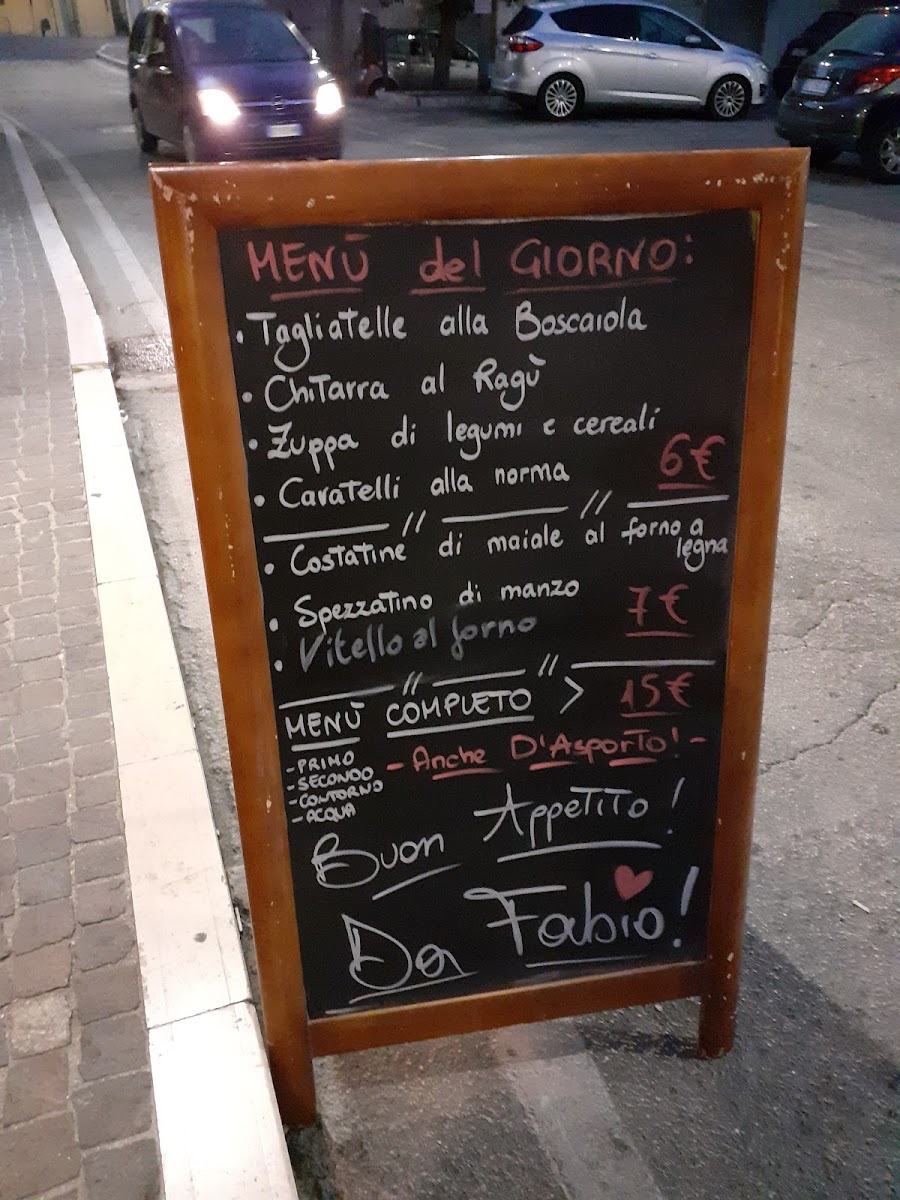 MENÙ del GIORNO:
• Tagliatelle alla Boscaiola
• Chitarra al Ragù
• Zuppa di legumi e cereali
6€
• Cavatelli alla norma
• Costatine di maiale al forno a legna
• Spezzatino di manzo
7€
• Vitello al forno
MENÙ COMPLETO > 15€
- PRIMO
- SECONDO
- CONTORNO
- ACQUA
- Anche D'Asporto! -
Buon Appetito!
Da Fabio!